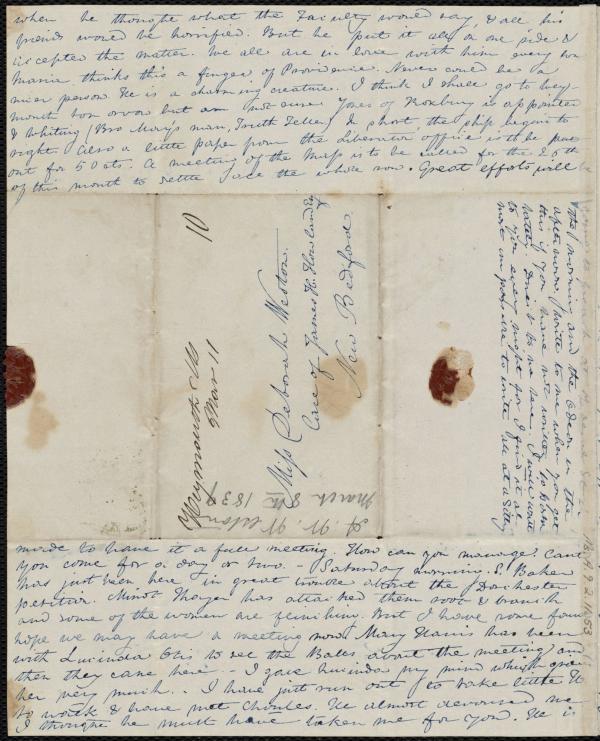 when he thought what the Faculty would say, & all his
friends would be horrified. But he put it all on one side &
accepted the matter. We all are in love with him every one
Maria thinks this a finger of Providence. Never could be a
nicer person. He is a charming creature. I think I shall go to Wey-
mouth tomorrow but am not sure. Jones of Roxbury is appointed
& Whiting (Bro May's man, Truth Teller) & short the ship begins to
right. Also a little paper from the Liberator office is to be put
out for 50 cts. A meeting of the Mass is to be called for the 25th
of this month to settle the whole row. Great efforts will be
the morning and the Odeon in the
afternoon. Write to me when you get
this if you have not written to Ann
lately. Don't to be so. I will write
to you every night for I find it al
more in posture to write all at a sitty
10
Weymouth Ms
Mar 11
Miss Deborah Weston.
Care of James H. Howland
New Bedford.
A. W. Weston
March 8th 1839
1839.9.2 p.53
made to have it a full meeting. How can you manage? Can't
you come for a day or two. – Saturday morning. S. Baker
has just been here in great trouble about the Dorchester
petition. Minot Thayer has attacked them root & branch
and some of the women are flinching. But I have some faint
hope we may have a meeting now. Mary Harris has been
with Lucinda Otis to see the Bates about the meeting and
then they came here – I gave Lucinda my mind which
her very much. – I have just run out to take little H
to walk & have met Charles. He almost devoured me
I thought he must have taken me for you. He is